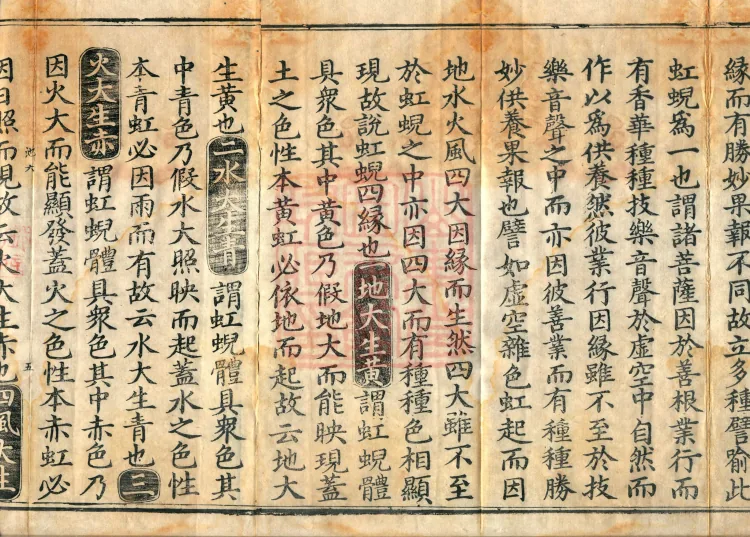 緣而有勝妙果報不同故立多種譬喻此
虹蜺爲一也謂諸菩薩因於善根業行而
有香華種種技樂音聲於虛空中自然而
作以爲供養然彼業行因緣雖不至於技
樂音聲之中而亦因彼善業而有種種勝
妙供養果報也譬如虛空雜色虹起而因
地水火風四大因緣而生然四大雖不至
於虹蜺之中亦因四大而有種種色相顯
現故說虹蜺四緣也 地大生黃 謂虹蜺體
具衆色其中黃色乃假地大而能映現蓋
土之色性本黃虹必依地而起故云地大
生黃也 二水大生青 謂虹蜺體具衆色其
中青色乃假水大照映而起蓋水之色性
本青虹必因雨而有故云水大生青也 三
火大生赤 謂虹蜺體具衆色其中赤色乃
因火大而能顯發蓋火之色性本赤虹必
池六 五
因日照而現故云火大生赤也 四風大生